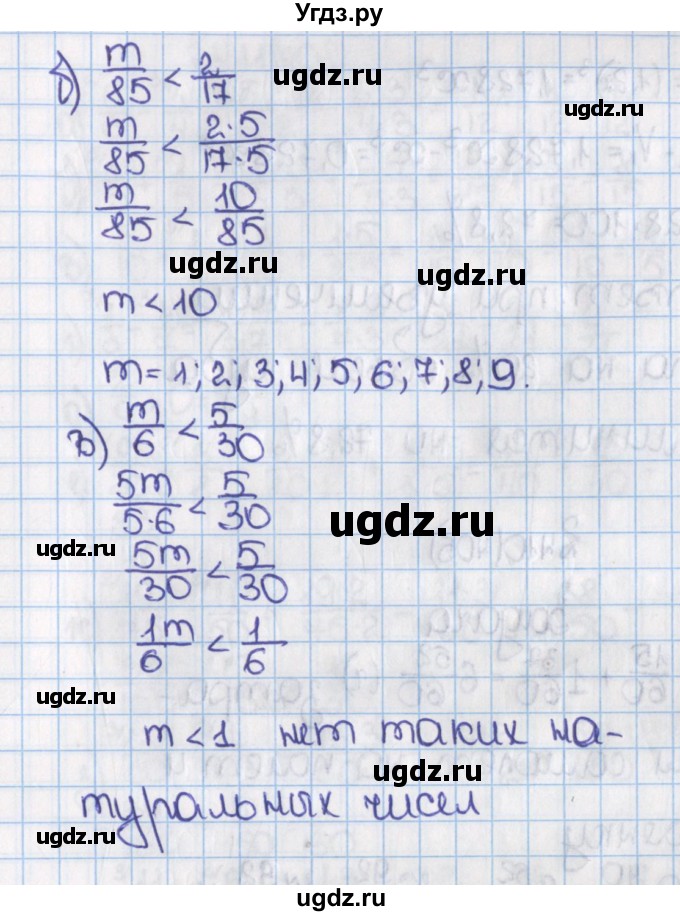 Угдз.ру
б) m/85 < 2/17
ugdz.ru
ugdz.ru
m/85 < 2·5/17·5
m/85 < 10/85
ugdz.ru
ugdz.ru
m < 10
m = 1; 2; 3; 4; 5; 6; 7; 8; 9.
в) m/6 < 5/30
5m/5·6 < 5/30
ugdz.ru
ugdz.ru
5m/30 < 5/30
1m/6 < 1/6
ugdz.ru
m < 1 нет таких на-
ugdz.ru
туральных чисел
ugdz.ru
ugdz.ru